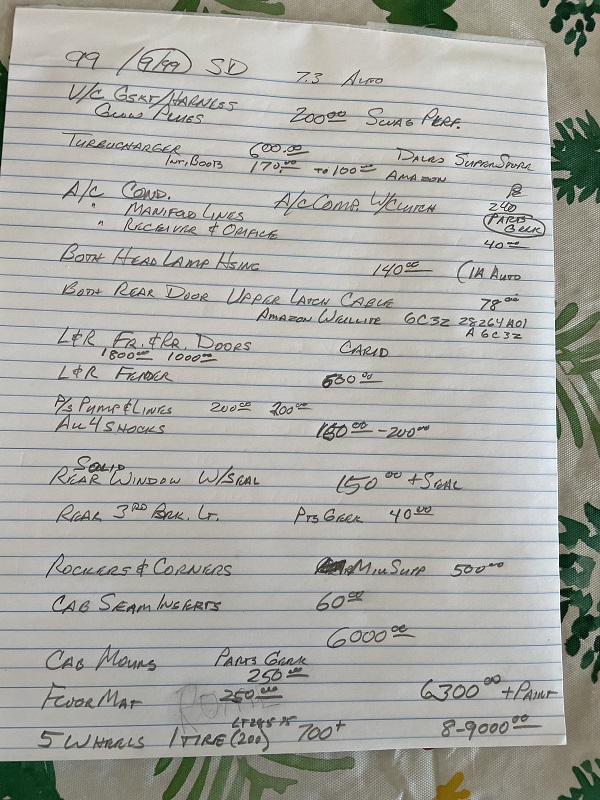 99 / 9/99 SD 7.3 AUTO
V/C GSKT/HARNESS
GLOW PLUGS 200.00 SWAG PERF.
TURBOCHARGER 600.00 DALES SUPER STORE
INT. BOOTS 170.00 TO 100.00 AMAZON
A/C COND. A/C COMP. W/CLUTCH 240
" MANIFOLD LINES PARTS GEEK
" RECEIVER & ORFICE 40.00
BOTH HEAD LAMP HSING 140.00 (1A AUTO
BOTH REAR DOOR UPPER LATCH CABLE 78.00
AMAZON WELLITE 6C3Z 28264A01
A 6C3Z
L&R FR. & RR. DOORS CARID
1800.00 1000.00
L&R FENDER 530.00
P/S PUMP & LINES 200.00 200.00
ALL 4 SHOCKS 150.00 - 200.00
SOLID
REAR WINDOW W/SEAL 150.00 + SEAL
REAR 3RD BRK. LT. PTS GEEK 40.00
ROCKERS & CORNERS MILL SUPP 500.00
CAB SEAM INSERTS 60.00
6000.00
CAB MOUNTS PARTS GEEK
250.00
FLOOR MAT 250.00 6300.00 + PAINT
LT245 75
5 WHEELS 1 TIRE (200) 700+ 8-9000.00